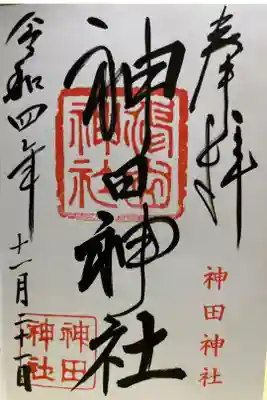 奉拝
神田神社
神田神社
令和四年
十一月二十一日
神田
神社